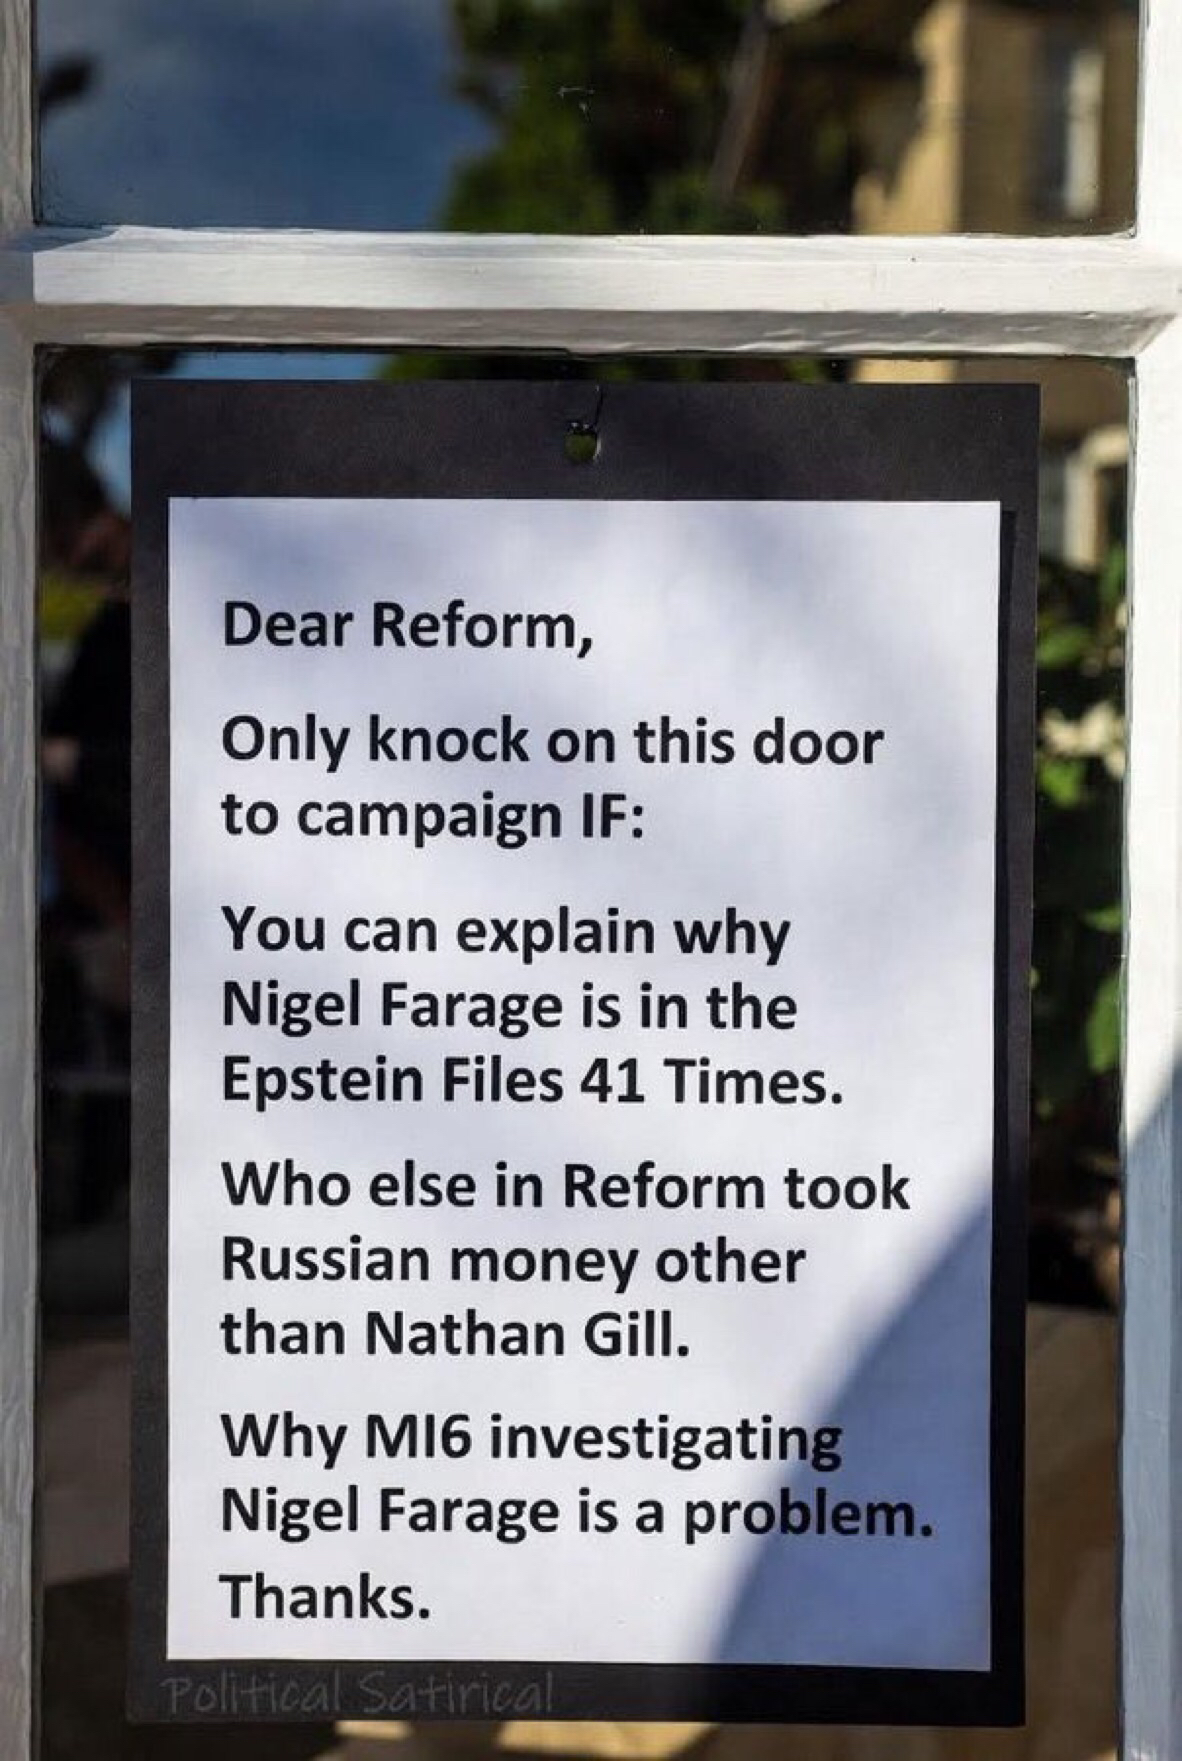 Dear Reform,
Only knock on this door
to campaign IF:
You can explain why
Nigel Farage is in the
Epstein Files 41 Times.
Who else in Reform took
Russian money other
than Nathan Gill.
Why MI6 investigating
Nigel Farage is a problem.
Thanks.
Political Satirical